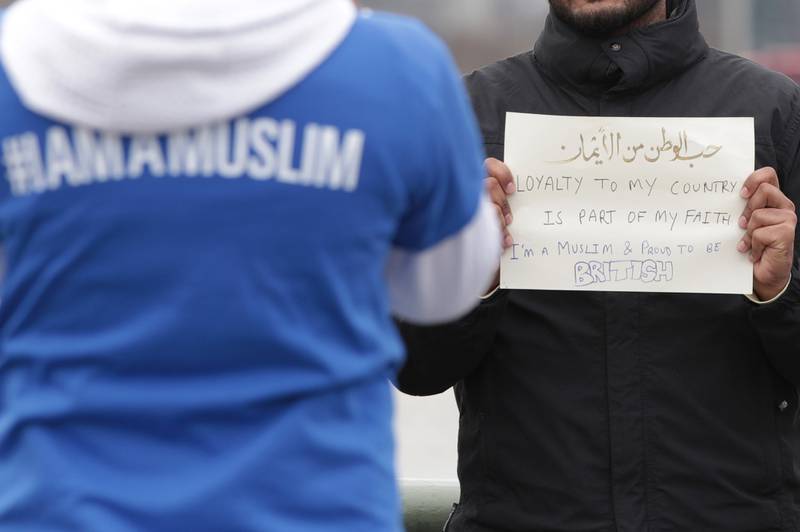 #IAMAMUSLIM
حب الوطن من الأيمان
LOYALTY TO MY COUNTRY
IS PART OF MY FAITH
I'm A MUSLIM & PROUD TO BE
BRITISH